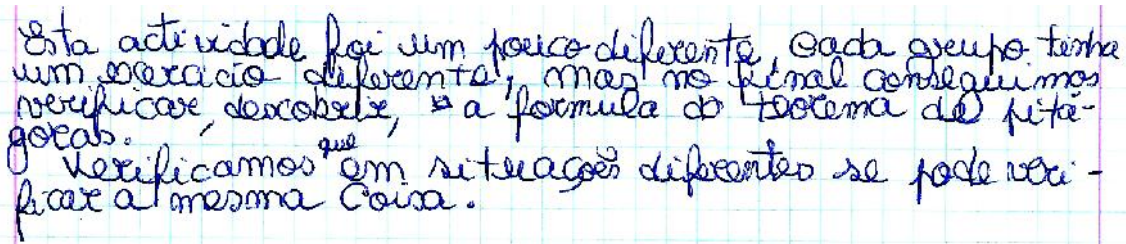 Esta actividade foi um pouco diferente, cada grupo tinha
um exercicio diferente, mas no final conseguimos
verificar, descobrir, a formula do teorema de pitá-
goras.
Verificamos que em situações diferentes se pode veri-
ficar a mesma coisa.